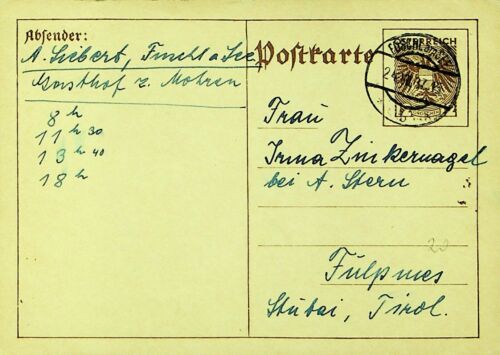 Absender:
A. Siebert, Fuschl a See
Gasthof z. Mohren
8 h
11 h 30
13 h 40
18 h
Postkarte
REICH
Frau
Irma Zinkernagel
bei A. Stern
20
Fulpmes
Stubai, Tirol.